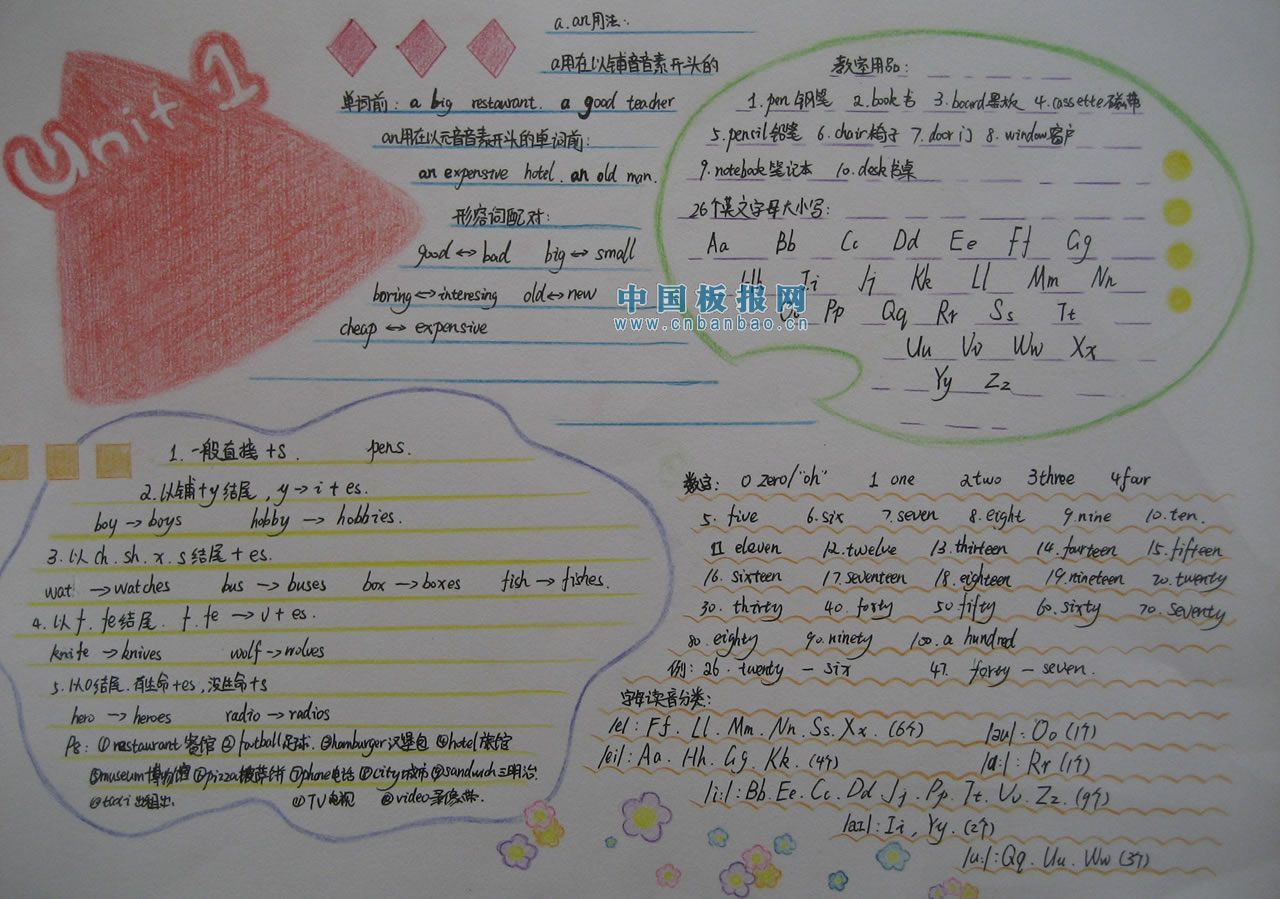 Unit 1
a. an用法:
a用在以辅音音素开头的
单词前: a big restaurant. a good teacher
an用在以元音音素开头的单词前:
an expensive hotel. an old man.
形容词配对:
good ↔ bad big ↔ small
boring ↔ interesing old ↔ new
cheap ↔ expensive
教室用品:
1. pen 钢笔 2. book 书 3. board 黑板 4. cassette 磁带
5. pencil 铅笔 6. chair 椅子 7. door 门 8. window 窗户
9. notebook 笔记本 10. desk 书桌
26个英文字母大小写:
Aa Bb Cc Dd Ee Ff Gg
Hh Ii Jj Kk Ll Mm Nn
Oo Pp Qq Rr Ss Tt
Uu Vv Ww Xx
Yy Zz
中国板报网
www.cnbanbao.cn
1. 一般直接+s. pens.
2. 以辅+y结尾, y→i+es.
boy → boys hobby → hobbies.
3. 以ch. sh. x. s结尾+es.
wat → watches bus → buses box → boxes fish → fishes.
4. 以f. fe结尾. f. fe → v+es.
knife → knives wolf → wolves
5. 以o结尾. 有生命+es, 没生命+s
hero → heroes radio → radios
Ps: ①restaurant 餐馆 ②football足球. ③hamburger 汉堡包 ④hotel旅馆
⑤museum博物馆 ⑥pizza披萨饼 ⑦phone电话 ⑧city城市 ⑨sandwich三明治.
⑩taxi 出租. ⑪TV电视 ⑫video录像带.
数字: 0 zero/"oh" 1 one 2 two 3 three 4 four
5. five 6. six 7. seven 8. eight 9. nine 10. ten.
11 eleven 12. twelve 13. thirteen 14. fourteen 15. fifteen
16. sixteen 17. seventeen 18. eighteen 19. nineteen 20. twenty
30. thirty 40. forty 50 fifty 60. sixty 70. seventy
80. eighty 90. ninety 100. a hundred
例: 26. twenty - six 47. forty - seven.
字母读音分类:
/e/: Ff. Ll. Mm. Nn. Ss. Xx. (6个) /əu/: Oo (1个)
/ei/: Aa. Hh. Gg. Kk. (4个) /a:/: Rr (1个)
/i:/: Bb. Ee. Cc. Dd Jj. Pp. Tt. Vv. Zz. (9个)
/aɪ/: Ii, Yy. (2个)
/u:/: Qq. Uu. Ww (3个)